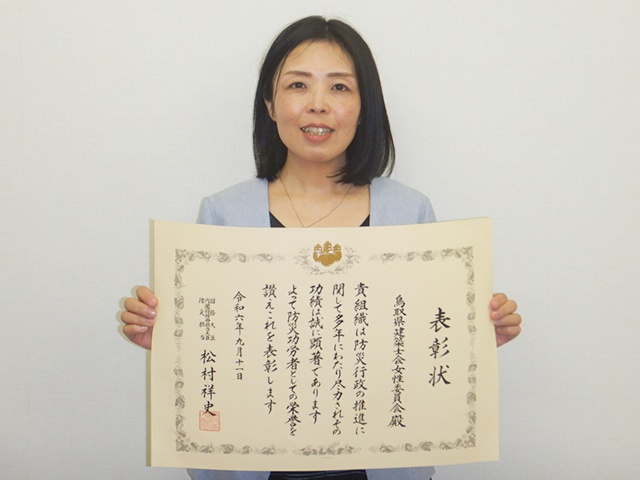 表彰状
鳥取県建築士会女性委員会殿
貴組織は防災行政の推進に
関して多年にわたり尽力されその
功績は誠に顕著であります
よって防災功労者としての栄誉を
讃えこれを表彰します
令和六年九月十一日
国務大臣
松村祥史